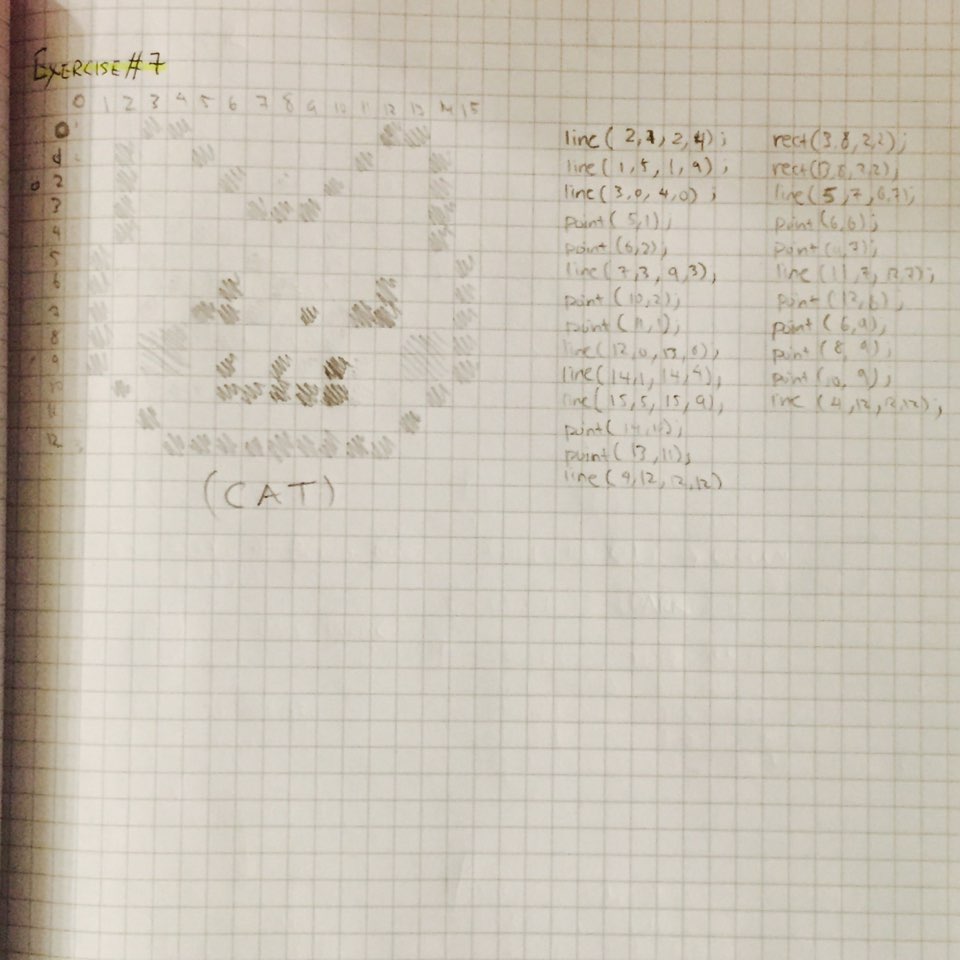 EXERCISE #7
0 1 2 3 4 5 6 7 8 9 10 11 12 13 14 15
0
1
0 2
3
4
5
6
7
8
9
10
11
12
(CAT)
line( 2,1,2,4);
line( 1,5,1,9);
line( 3,0,4,0);
point( 5,1);
point(6,2);
line( 7,3,9,3);
point (10,2);
point(11,1);
line(12,0,13,0);
line(14,1,14,4);
line(15,5,15,9);
point(
point( 13,11);
line( 4,12,12,12)
rect(3,8,2,2);
rect(13,8,2,2);
line(5,7,6,7);
point(6,6);
point(
line (11,7,12,7);
point (12,6);
point ( 6,9);
point ( 8, 9);
point (10, 9);
line (4,12,12,12);